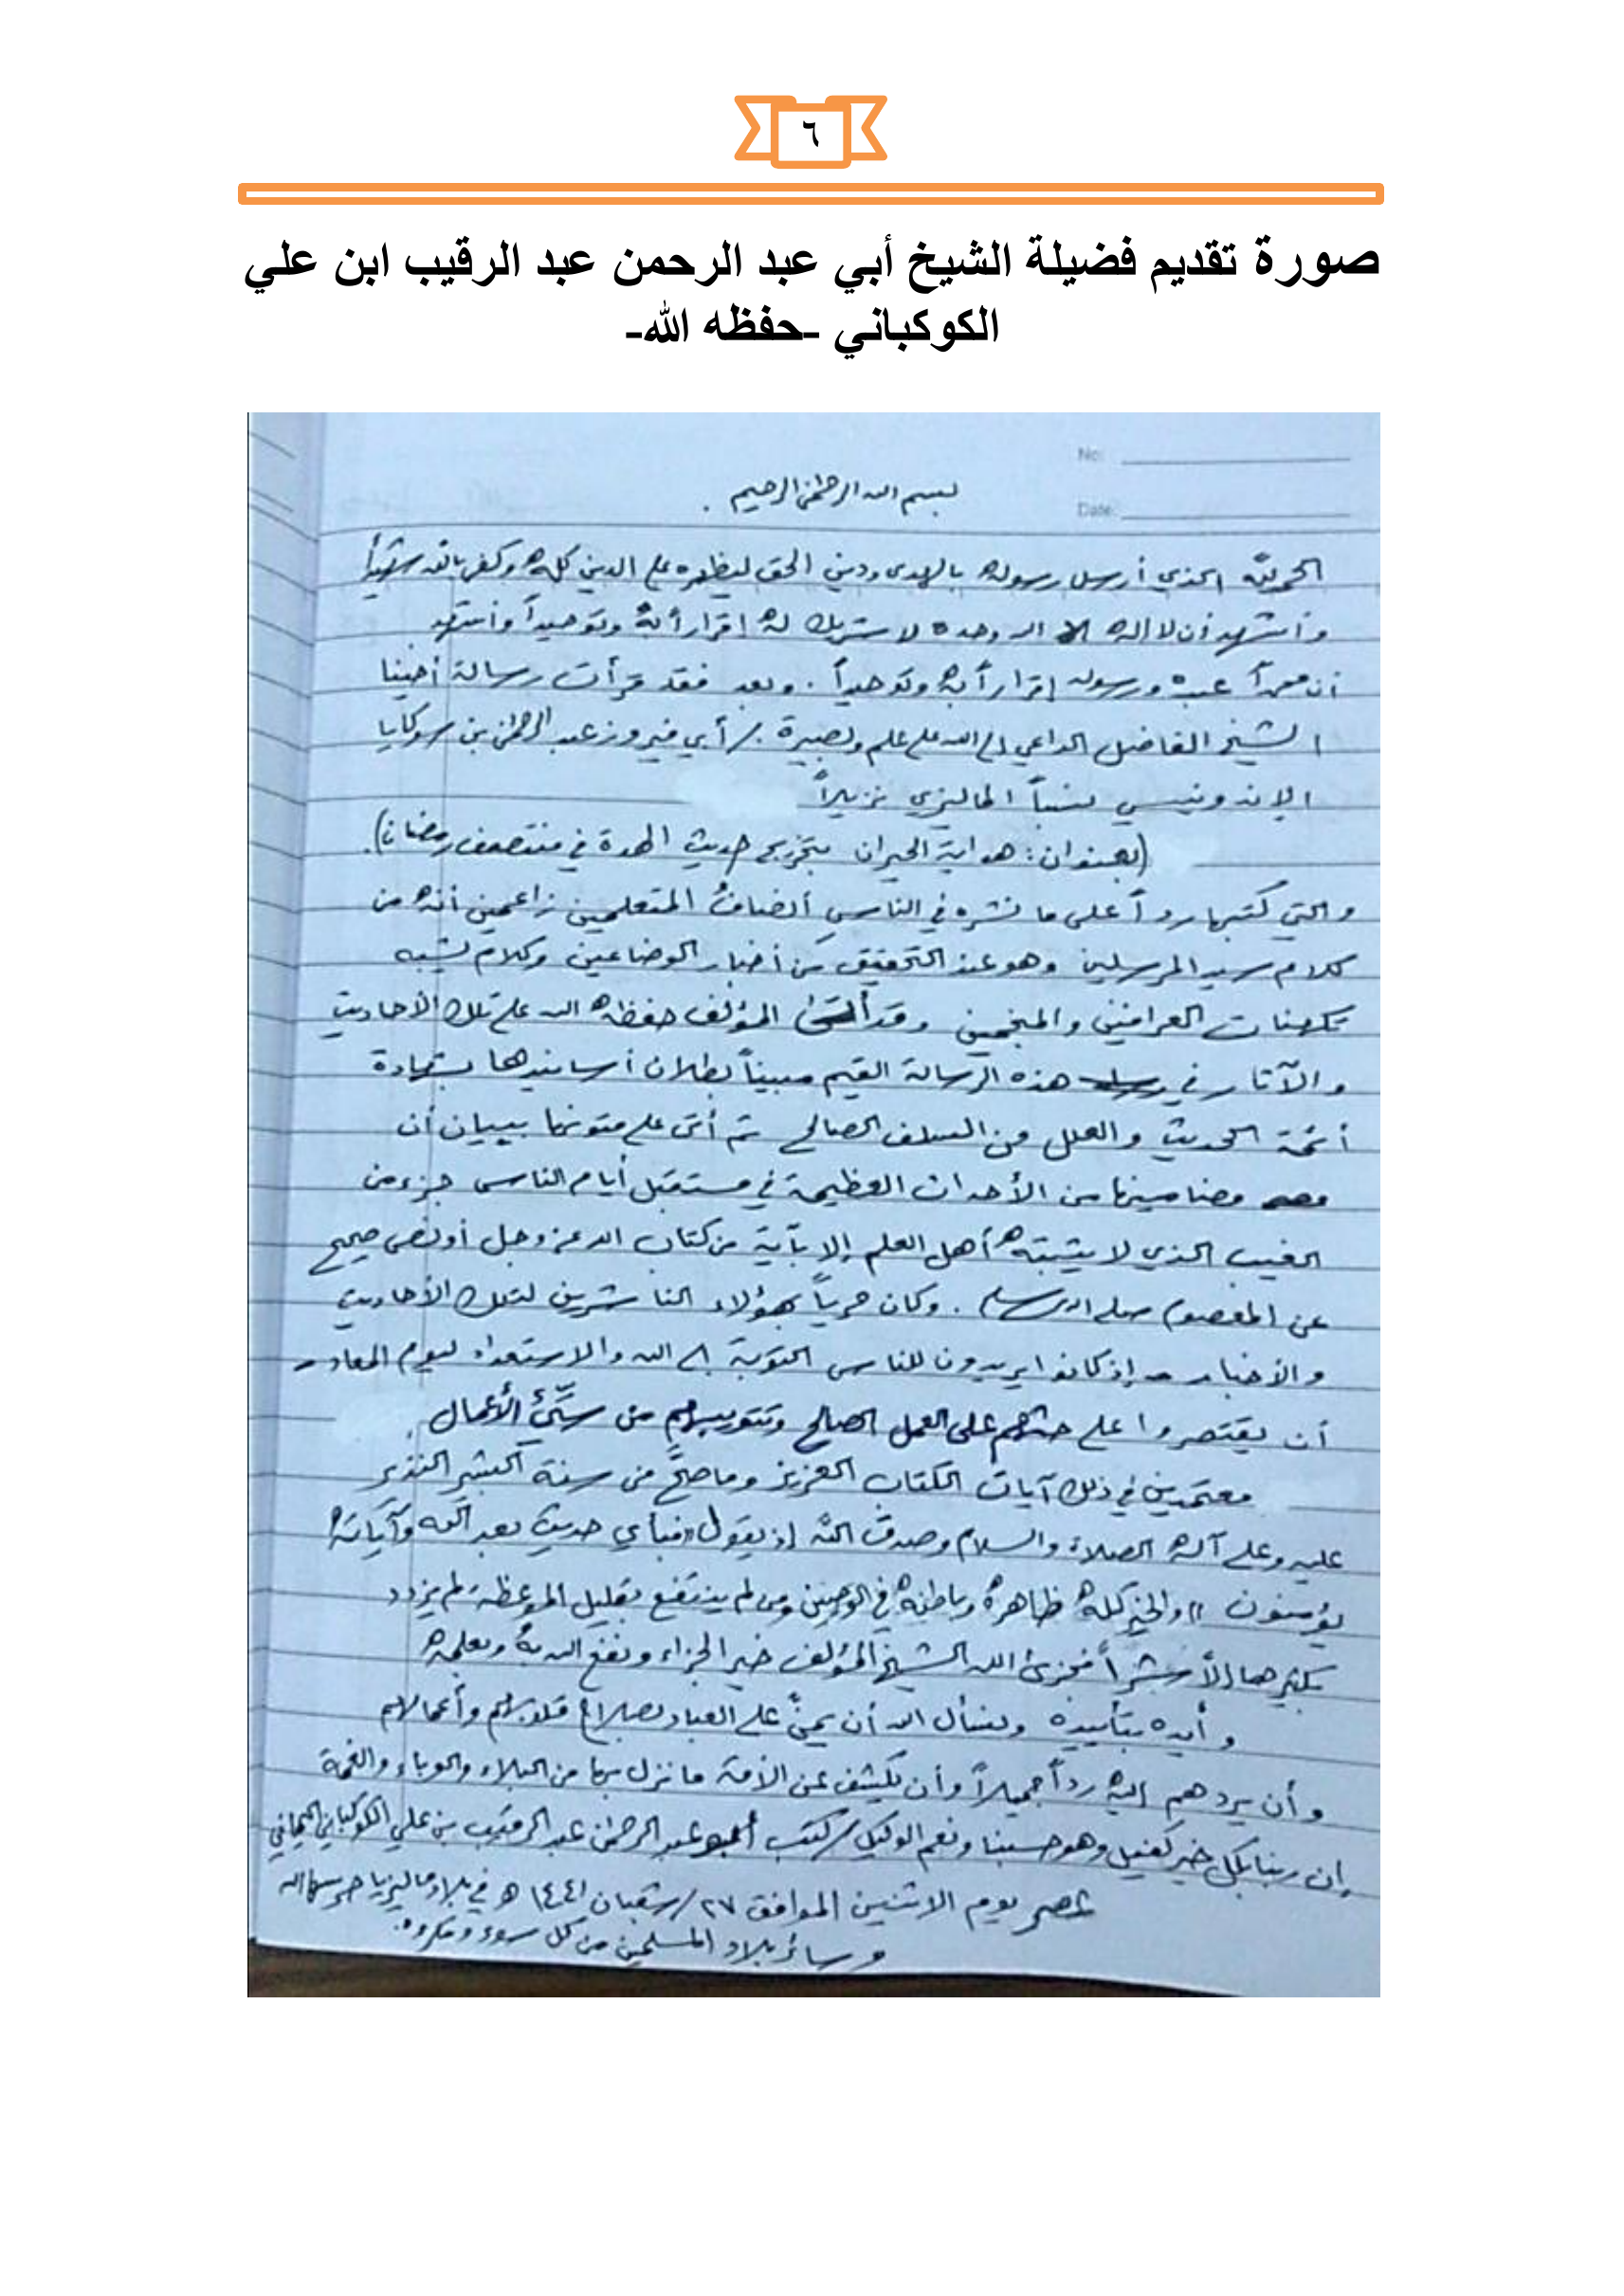 ٦
صورة تقديم فضيلة الشيخ أبي عبد الرحمن عبد الرقيب ابن علي
الكوكباني -حفظه الله-
No:
Date:
بسم الله الرحمن الرحيم .
الحمد لله الذي أرسل رسوله بالهدى ودين الحق ليظهره على الدين كله وكفى بالله شهيداً
وأشهد أن لا إله إلا الله وحده لا شريك له إقراراً به وتوحيداً وأشهد
أن محمداً عبده ورسوله إقراراً به وتوحيداً . وبعد فقد قرأت رسالة أخينا
الشيخ الفاضل الداعي إلى الله على علم وبصيرة / أبي فيروز عبد الرحمن بن سوكايا
الإندونيسي نسباً الماليزي نزيلاً
(بعنوان: هداية الحيران بتخريج حديث الهدة في منتصف رمضان).
والتي كتبها رداً على ما نشره في الناس أنصاف المتعلمين زاعمين أنه من
كلام سيد المرسلين وهو عند التحقيق من أخبار الوضاعين وكلام يشبه
تكهنات العرافين والمنجمين وقد أتى المؤلف حفظه الله على تلك الأحاديث
والآثار في هذه الرسالة القيم مبيناً بطلان أسانيدها بشهادة
أئمة الحديث والعلل من السلف الصالح ثم أتى على متونها ببيان أن
مضامينها من الأحداث العظيمة في مستقبل أيام الناس جزء من
الغيب الذي لا يثبته أهل العلم إلا بآية من كتاب الله عز وجل أو نص صحيح
عن المعصوم صلى الله وسلم . وكان حرياً بهؤلاء الناشرين لتلك الأحاديث
والأخبار - إذ كانوا يريدون للناس التوبة إلى الله والاستعداد ليوم المعاد -
أن يقتصروا على حثهم على العمل الصالح وتتويبهم من سيّئ الأعمال .
معتمدين في ذلك آيات الكتاب العزيز وما صحَّ من سنة البشير النذير
عليه وعلى آله الصلاة والسلام وصدق الله إذ يقول «فبأي حديث بعد الله وآياته
يؤمنون» والخير كله ظاهره وباطنه في الوحيين ومن لم ينتفع بقليل الموعظة لم يزدد
بكثيرها إلا شراً فجزى الله الشيخ المؤلف خير الجزاء ونفع الله به وبعلمه
وأيده بتأييده ونسأل الله أن يمنَّ على العباد بصلاح قلوبهم وأعمالهم
وأن يردهم إليه رداً جميلاً وأن يكشف عن الأمة ما نزل بها من البلاء والوباء والغمة
إن ربنا بكل خير كفيل وهو حسبنا ونعم الوكيل / كتب أبو عبد الرحمن عبد الرقيب بن علي الكوكباني اليماني
عصر يوم الاثنين الموافق ٢٧ / شعبان ١٤٤١ هـ في بلاد ماليزيا حرسها الله
وسائر بلاد المسلمين من كل سوء ومكروه.